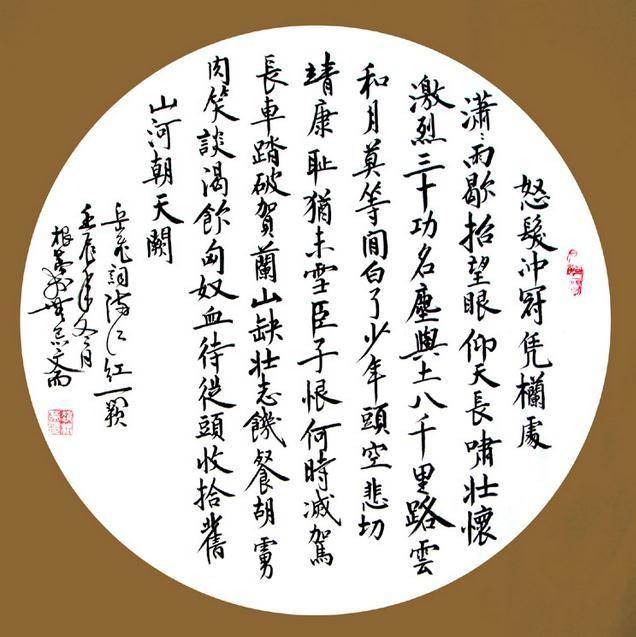 怒髮冲冠凭欄處
瀟々雨歇抬望眼仰天長嘯壯懷
激烈三十功名塵與土八千里路雲
和月莫等閒白了少年頭空悲切
靖康耻猶未雪臣子恨何時滅駕
長車踏破賀蘭山缺壯志饑餐胡虜
肉笑談渴飲匈奴血待從頭收拾舊
山河朝天闕
岳飛詞滿江紅一闋
壬辰年冬月